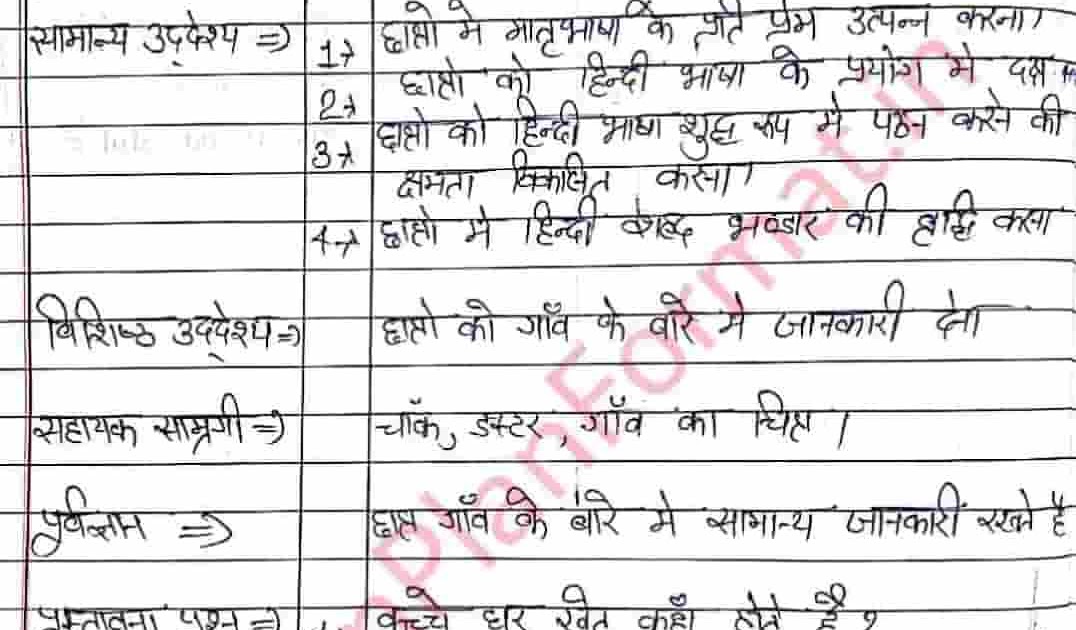 सामान्य उद्देश्य ⇒) 1→ छात्रो मे मातृभाषा के प्रति प्रेम उत्पन्न करना।
2→ छात्रो को हिन्दी भाषा के प्रयोग मे दक्ष
3→ छात्रो को हिन्दी भाषा शुद्ध रूप मे पठन करने की
क्षमता विकसित करना।
4→ छात्रो मे हिन्दी शब्द भण्डार की वृद्धि करना
विशिष्ठ उद्देश्य ⇒) छात्रो को गाँव के बारे मे जानकारी देना
सहायक सामग्री ⇒) चॉक, डस्टर, गाँव का चित्र।
पूर्वज्ञान ⇒ छात्र गाँव के बारे मे सामान्य जानकारी रखते है
प्रस्तावना प्रश्न ⇒) बच्चे घर खेत कहाँ होते है?
PlanFormat.in